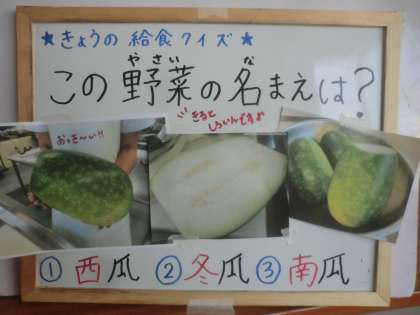 ★きょうの 給食クイズ★
この野菜の名まえは?
やさい
な
おっき〜い!!
きると
しろいんですよ
① 西瓜 ② 冬瓜 ③ 南瓜